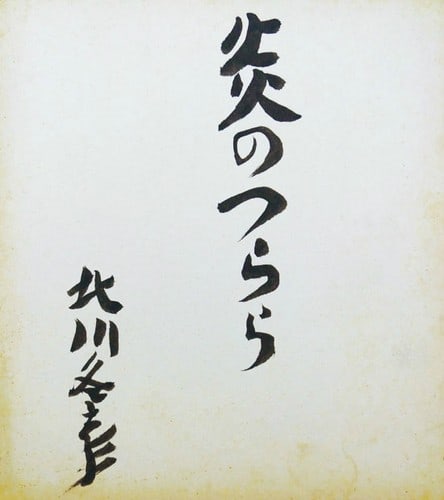 炎のつらら
北川冬彦